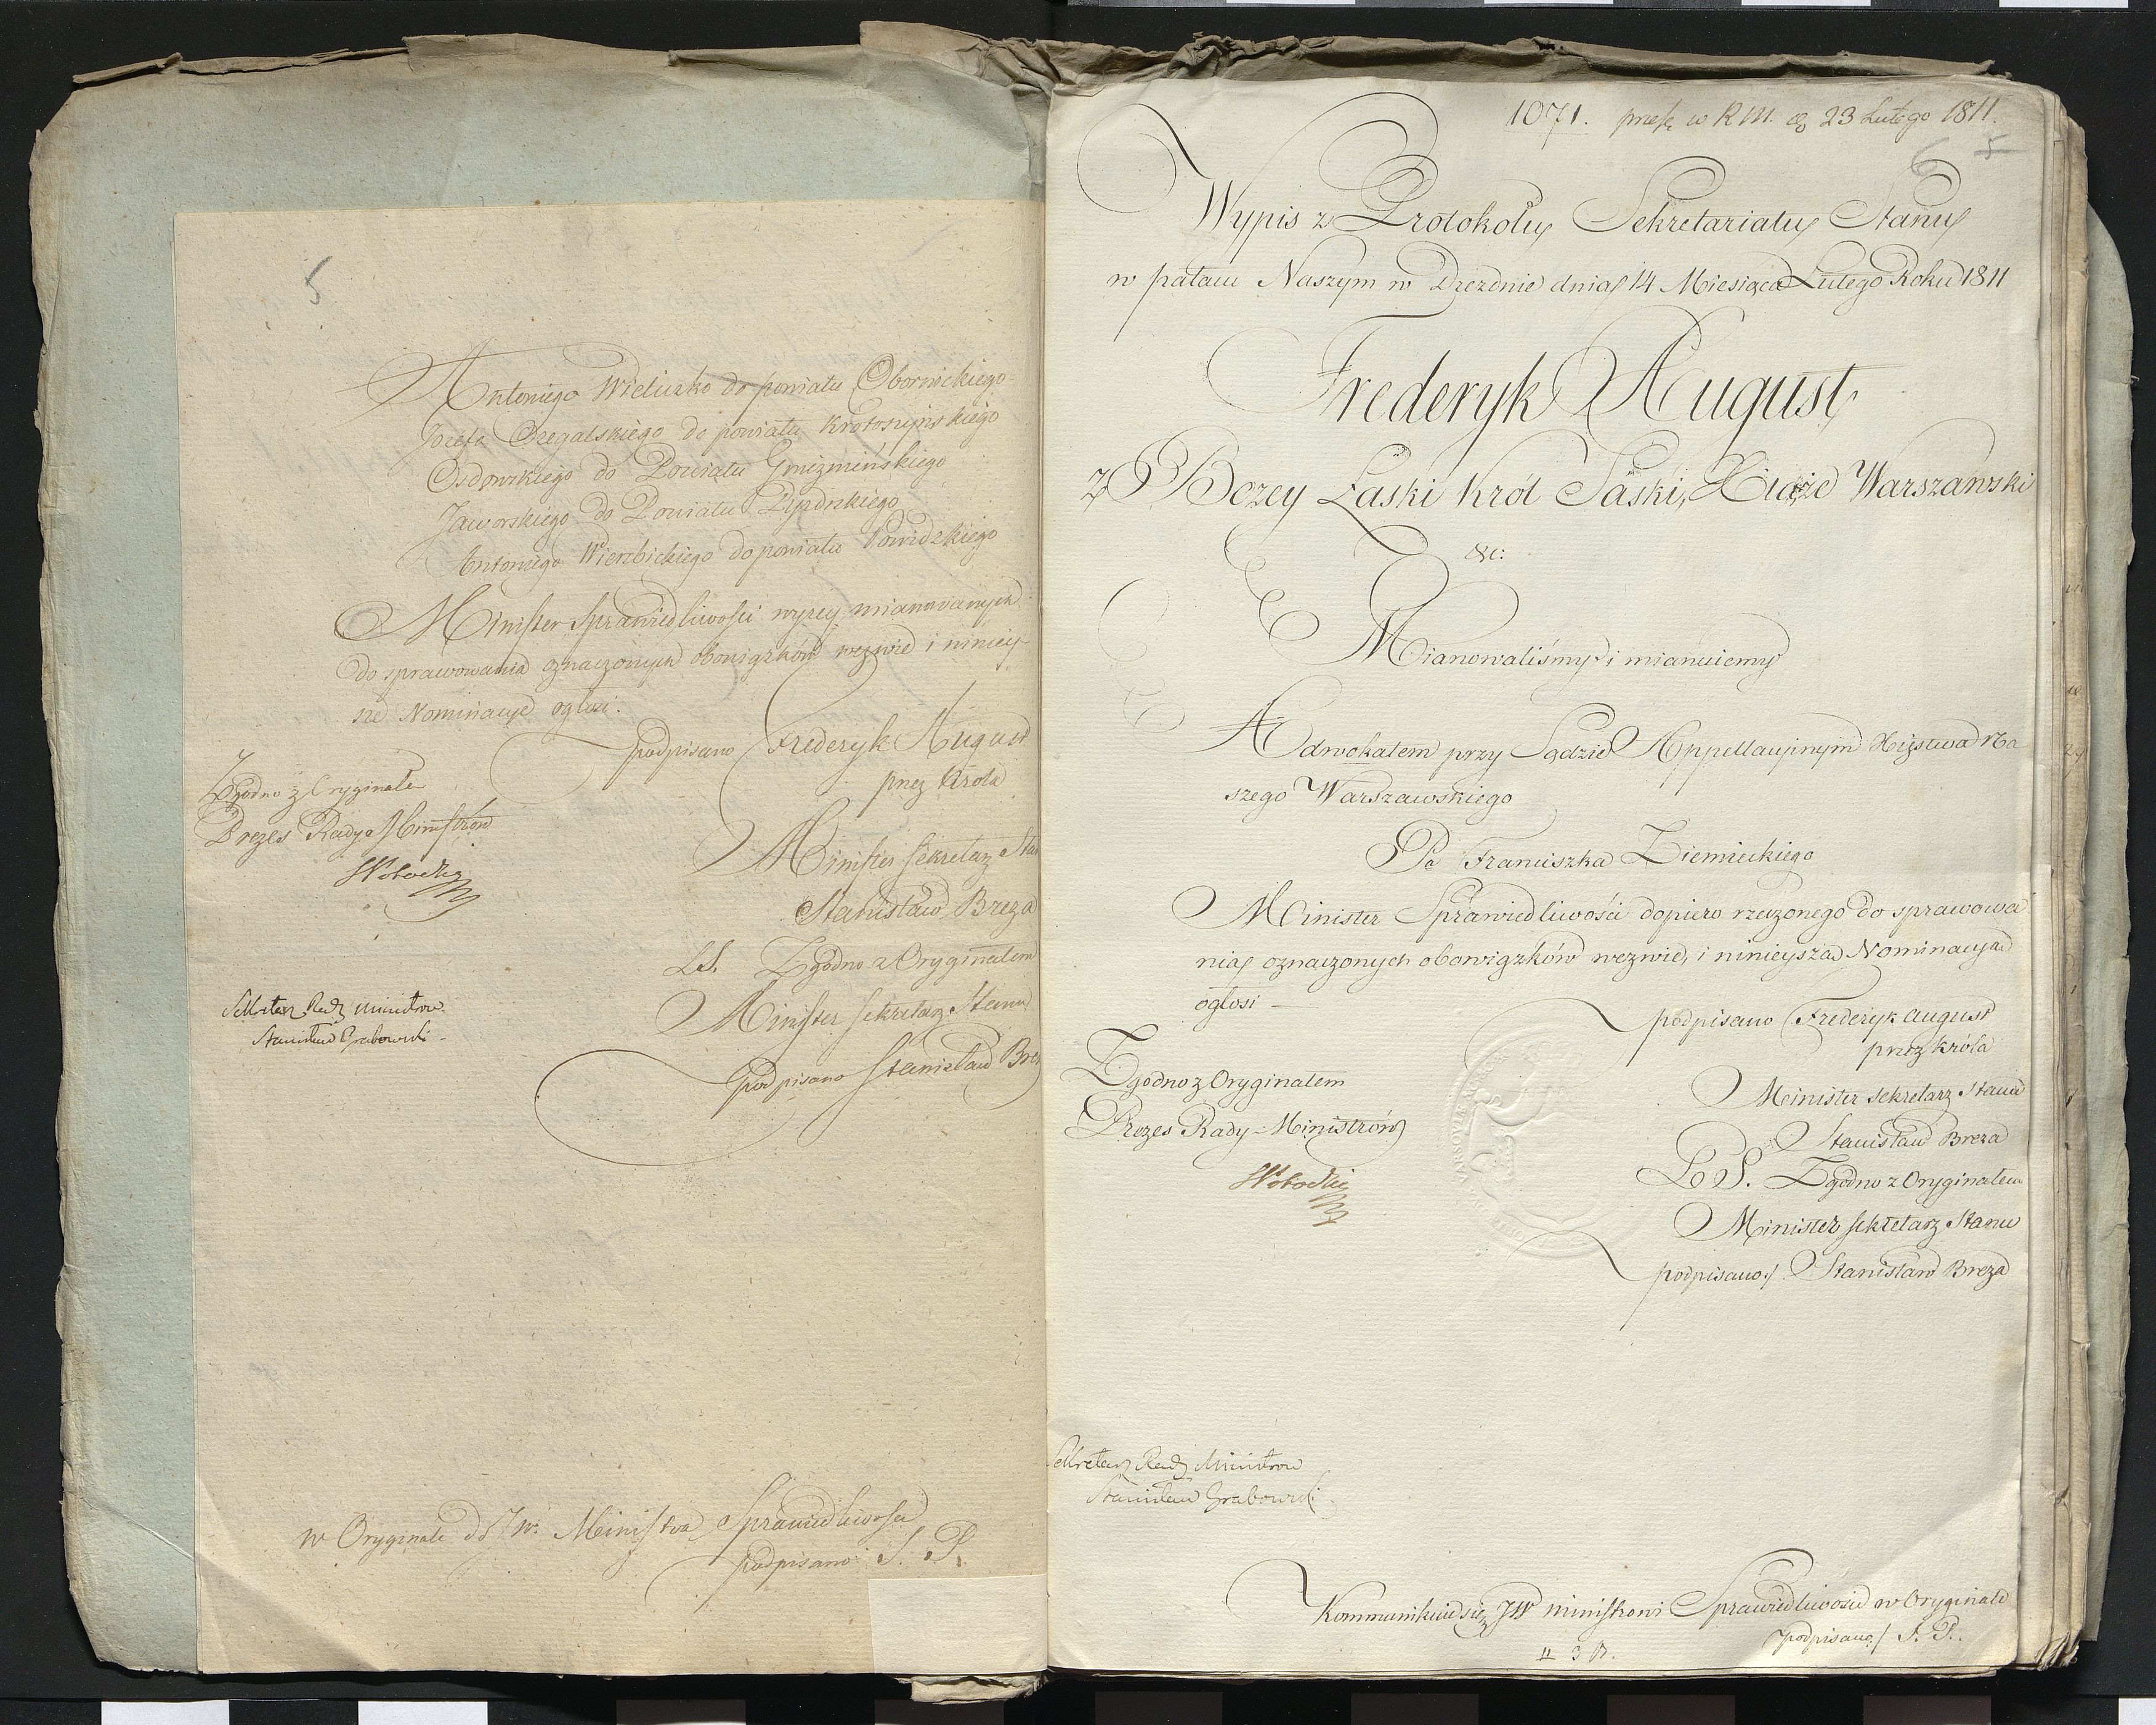 5
Antoniego Wieluzko do powiatu Obornickiego
Jozefa Ozegalskiego do powiatu Krotoszyńskiego
Osdowskiego do Powiatu Gnizmińskiego
Jaworskiego do Powiatu Pyzdrskiego
Antoniego Wierzbickiego do powiatu Powidzkiego
Minister Sprawiedliwości wyzey mianowanych
do sprawowania oznaczonych obowiązków wezwie i niniey-
sze Nominacye ogłosi.
podpisano Frederyk August
przez Króla
Zgodno z Oryginałem
Prezes Rady Ministrów
Minister Sekretarz Stan
Stanisław Breza
LS. Zgodno z Oryginałem
Minister Sekretarz Stanu
podpisano Stanisław Brez
Sekretarz Rady Ministrow
Stanisław Grabowski
w Oryginale do JW. Ministra Sprawiedliwości
podpisano S. P.
1071. w RM. 23 Lutego 1811.
6 5
Wypis z Protokołu Sekretariatu Stanu
w pałacu Naszym w Dreznie dnia 14 Miesiąca Lutego Roku 1811
Frederyk August
z Bozey Łaski Król Saski, Xiąże Warszawski
&c:
Mianowaliśmy i mianuiemy
Adwokatem przy Sądzie Appellacyinym Xięstwa Na
szego Warszawskiego
Pa Franciszka Ziemieckiego
Minister Sprawiedliwości dopiero rzeczonego do sprawowa
nia oznaczonych obowiązków wezwie, i ninieysza Nominacya
ogłosi –
podpisano Frederyk August
przez króla
Zgodno z Oryginałem
Prezes Rady Ministrów
Minister Sekretarz Stanu
Stanisław Breza
L S. Zgodno z Oryginałem
Minister Sekretarz Stanu
podpisano/. Stanisław Breza
Sekretarz Rady Ministrow
Stanisław Grabowski
Kommunikuie się JW Ministrowi Sprawiedliwości w Oryginale
podpisano/ S. P.